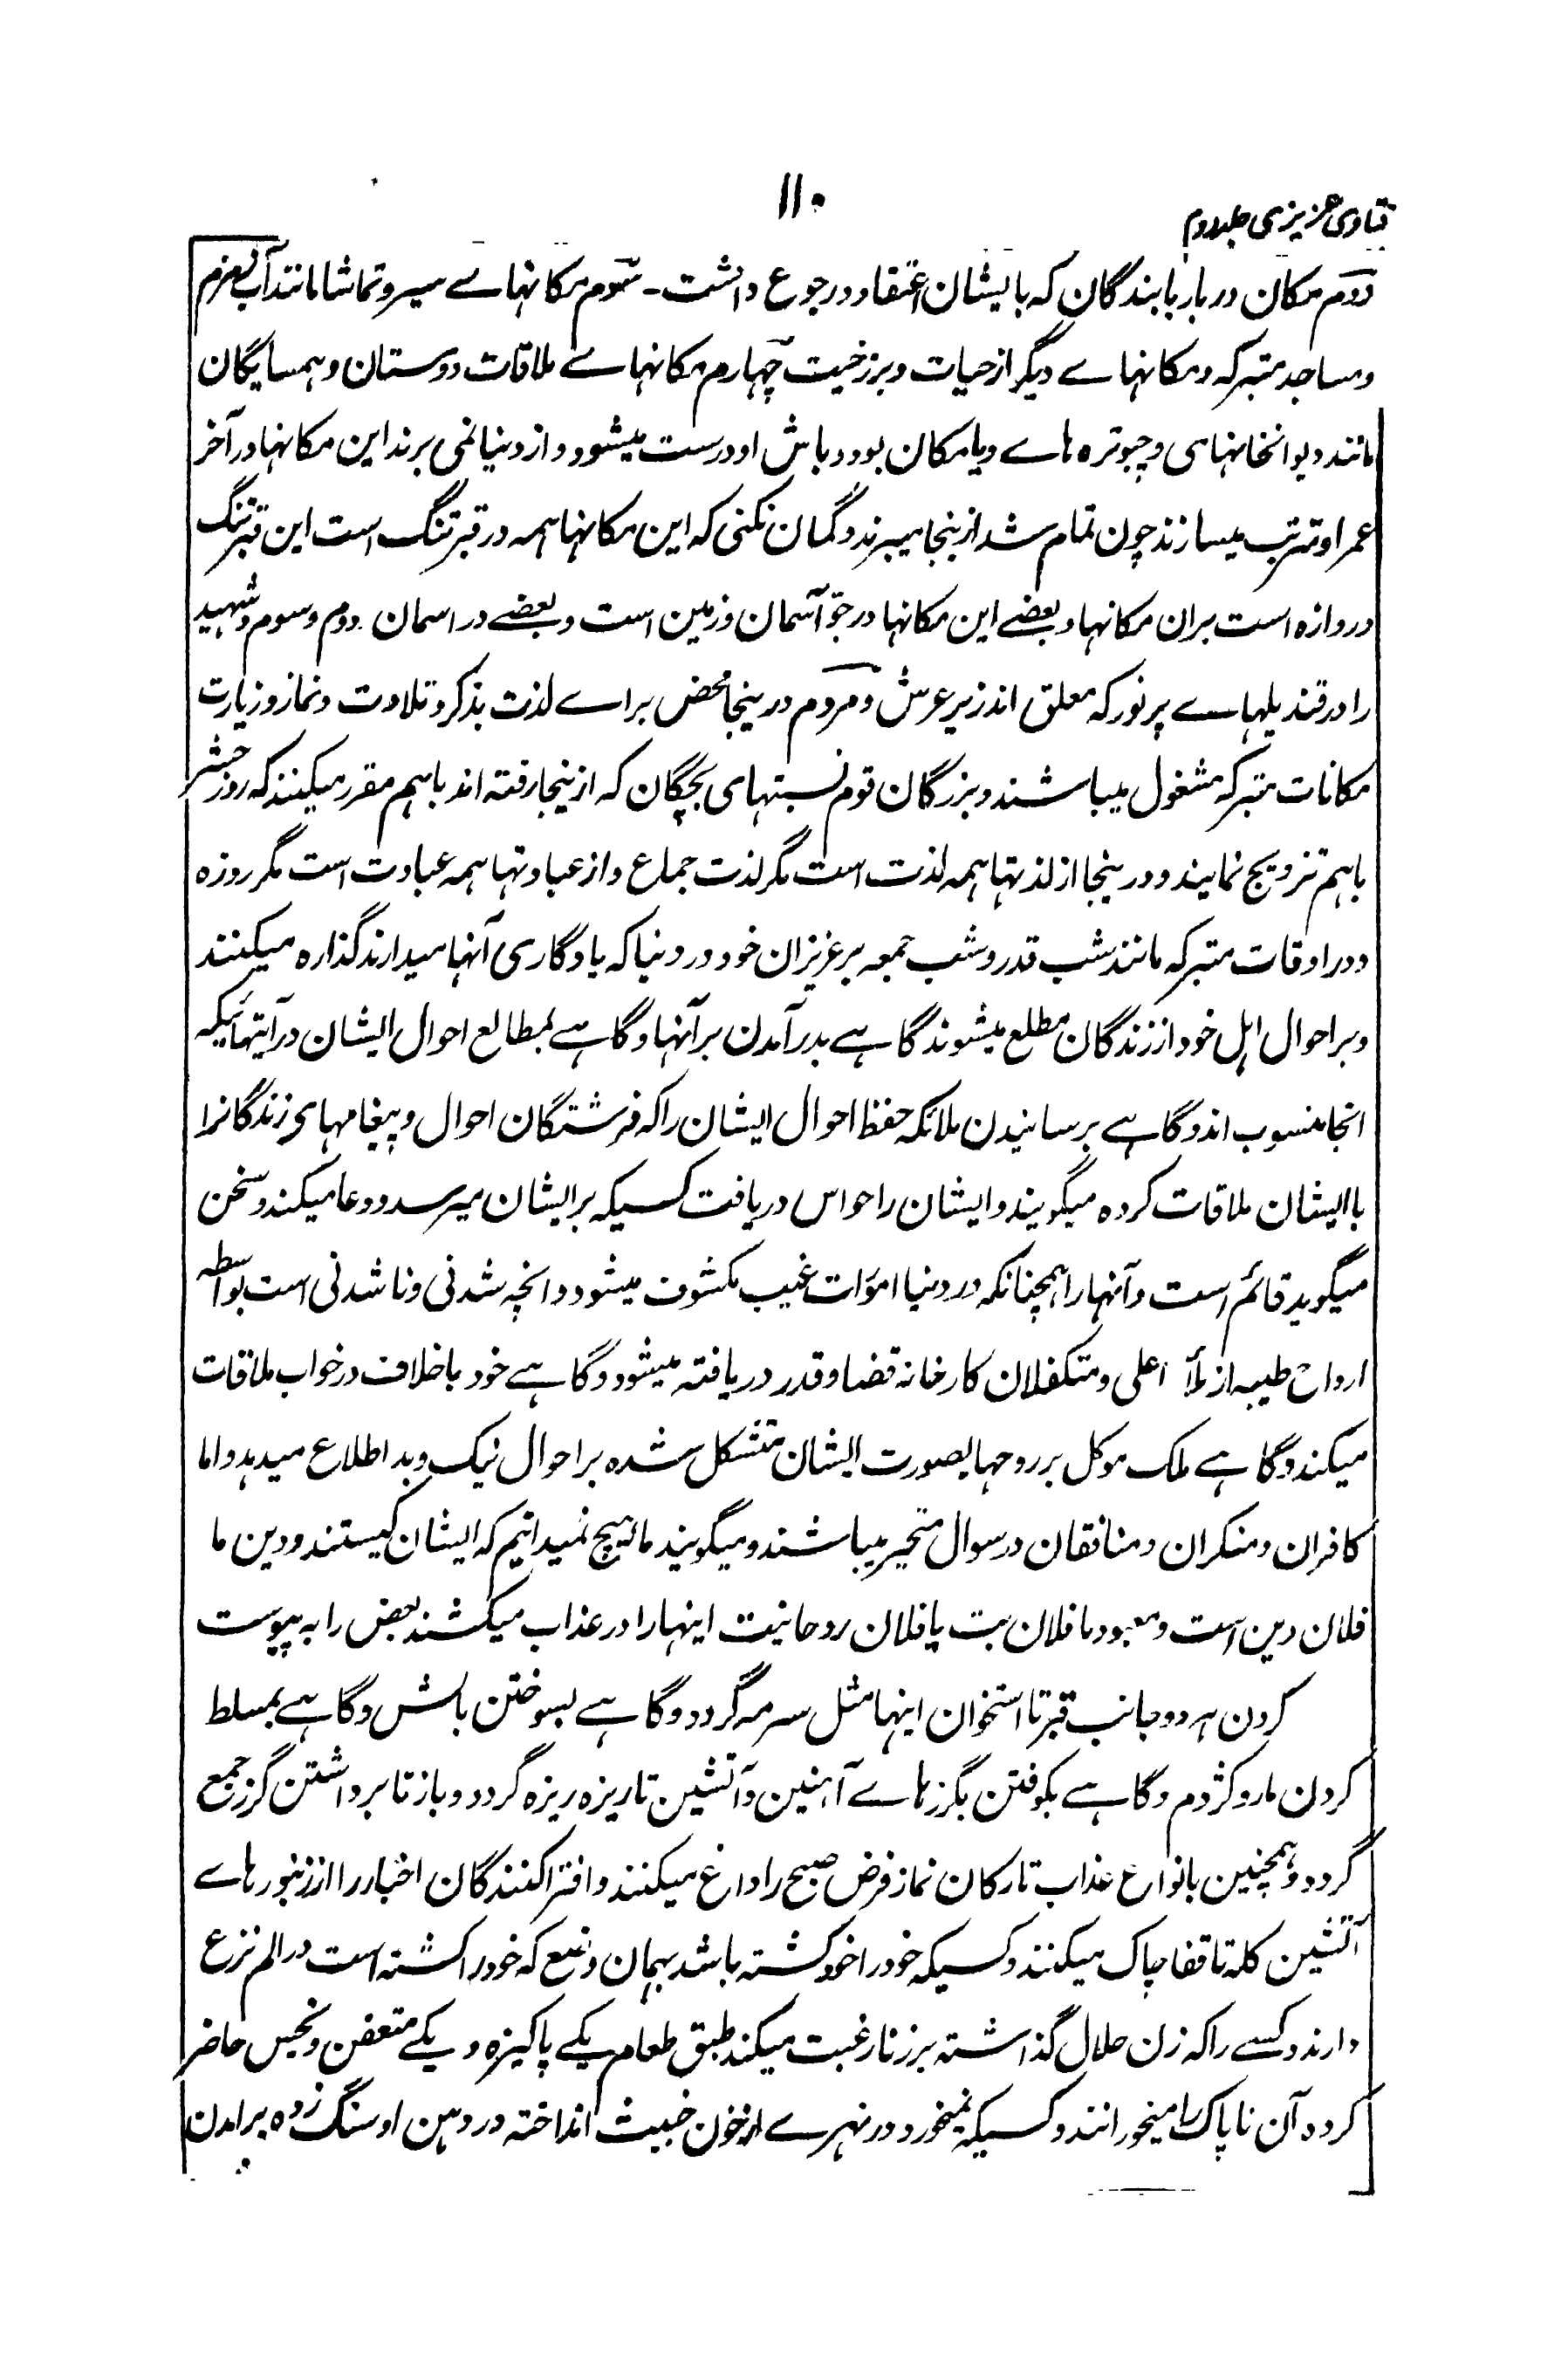 ۱۱۰
فتاوی عزیزی جلد دوم
دوم مکان دربار یا بندگان که با یشان اعتقاد و رجوع داشت - سوم مکانهاے سیر و تماشا مانند آب زمزم
و مساجد متبرکه و مکانهاے دیگر از حیات و برزخیت چهارم مکانهاے ملاقات دوستان و همسایگان
مانند دیوانخانهای و چبوتره هاے و یا مکان بود و باش او درست میشود و از دنیا نمی برند این مکانها در آخر
عمر او ترتیب میسازند چون تمام شد از ینجا میبرند و گمان نکنی که این مکانها همه در قبر تنگ است این قبر تنگ
دروازه است بران مکانها و بعضے این مکانها در جوّ آسمان و زمین است و بعضے در اسمان دوم و سوم و شهید
را در قندیلهاے پر نور که معلق اند زیر عرش و مردم درینجا محض براے لذت بذکر و تلاوت و نماز و زیارت
مکانات متبرکه مشغول میباشند و بزرگان قوم نسبتهای بچگان که از ینجا رفته اند باهم مقرر میکنند که روز حشر
باهم تزویج نمایند و درینجا از لذتها همه لذت است مگر لذت جماع و از عبادتها همه عبادت است مگر روزه
و در اوقات متبرکه مانند شب قدر و شب جمعه بر عزیزان خود در دنیا که یادگاری آنها میدارند گذاره میکنند
و بر احوال اهل خود از زندگان مطلع میشوند گاهے بدر آمدن بر آنها و گاهے بمطالع احوال ایشان در آیتهائیکه
انجا منسوب اند و گاهے برسانیدن ملائکه حفظ احوال ایشان را که فرشتگان احوال و پیغامهای زندگانرا
با ایشان ملاقات کرده میگویند و ایشان را حواس دریافت کسیکه بر ایشان میرسد و دعا میکند و سخن
میگوید قائم است و آنها را همچنانکه در دنیا اموات غیب مکشوف میشود و انچه شدنی و ناشدنی است بواسطه
ارواح طیبه از ملأ اعلی و متکفلان کارخانه قضا و قدر دریافته میشود و گاهے خود با خلاف در خواب ملاقات
میکند و گاهے ملک موکل بر روحها بصورت ایشان متشکل شده بر احوال نیک و بد اطلاع میدهد و اما
کافران و منکران و منافقان در سوال متحیر میباشند و میگویند ما هیچ نمیدانیم که ایشان کیستند و دین ما
فلان دین است و معبود ما فلان بت یا فلان روحانیت اینها را در عذاب میکشند بعض را به پیوست
کردن هر دو جانب قبر تا استخوان اینها مثل سرمه گردد و گاهے بسوختن باتش و گاهے بمسلط
کردن مار و کژدم و گاهے بکوفتن بگرزهاے آهنین و آتشین تا ریزه ریزه گردد و باز تا برداشتن گرز جمع
گردد و همچنین بانواع عذاب تارکان نماز فرض صبح را داغ میکنند و افترا کنندگان اخبار را از زنبورهاے
آتشین کله تا قفا چاک میکنند و کسیکه خود را خود کشته باشد بهمان وضع که خود را کشته است در الم نزع
دارند و کسے را که زن حلال گذاشته بر زنا رغبت میکند طبق طعام یکے پاکیزه و یکے متعفن و نجس حاضر
کرده آن ناپاک را میخورانند و کسیکه میخورد در نهرے از خون خبیث انداخته در دهن او سنگ زده برآمدن